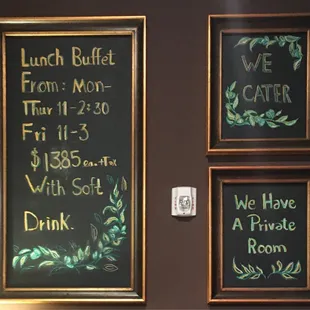 Lunch Buffet
From: Mon-
Thur 11-2:30
Fri 11-3
$13.85 ea. + Tax
With Soft
Drink.
WE
CATER
We Have
A Private
Room